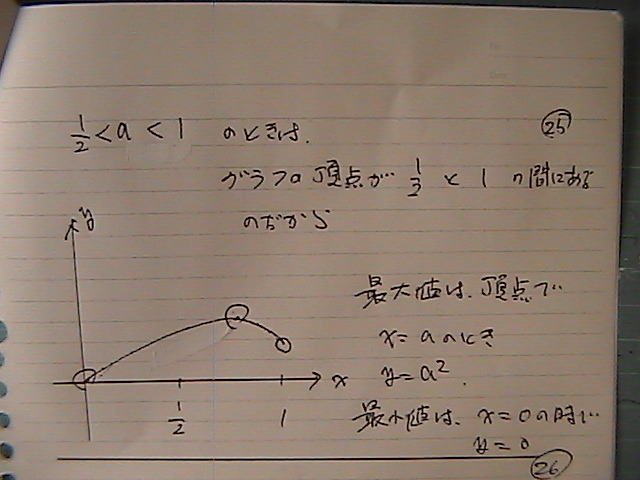 1/2 < a < 1 のときは、
㉕
グラフの頂点が 1/2 と 1 の間にある
のだから
y
最大値は、頂点で
x=aのとき
y=a².
x
1/2
1
最小値は、x=0の時で
y=0
㉖